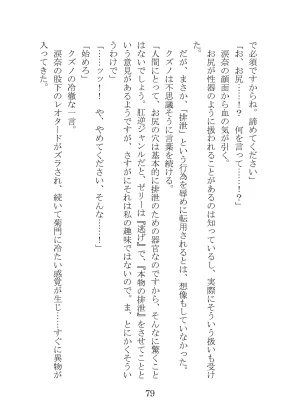 で必須ですからね。諦めてください」
「お、お尻……!? 何を言って……!?」
涙奈の顔面から血の気が引く。
お尻が性器のように扱われることがあるのは知っているし、実際にそういう扱いも受け
た。
だが、まさか、「排泄」という行為を辱めに転用されるとは、想像もしていなかった。
クズノは不思議そうに言葉を続ける。
「人間にとって、お尻の穴は基本的に排泄のための器官なのですから、そんなに驚くこと
はないでしょう。肛逆ジャンルだと、ゼリーは『逃げ』で、『本物の排泄』をさせてことと
いう意見があるようですが、さすがにそれは私の趣味ではないので。ま、とにかくそうい
うわけで」
「……ッッ!! や、やめてください、そんな……!」
「始めろ」
クズノの冷徹な一言。
涙奈の股下のレオタードがズラされ、続いて菊門に冷たい感覚が生じ……すぐに異物が
入ってきた。
79